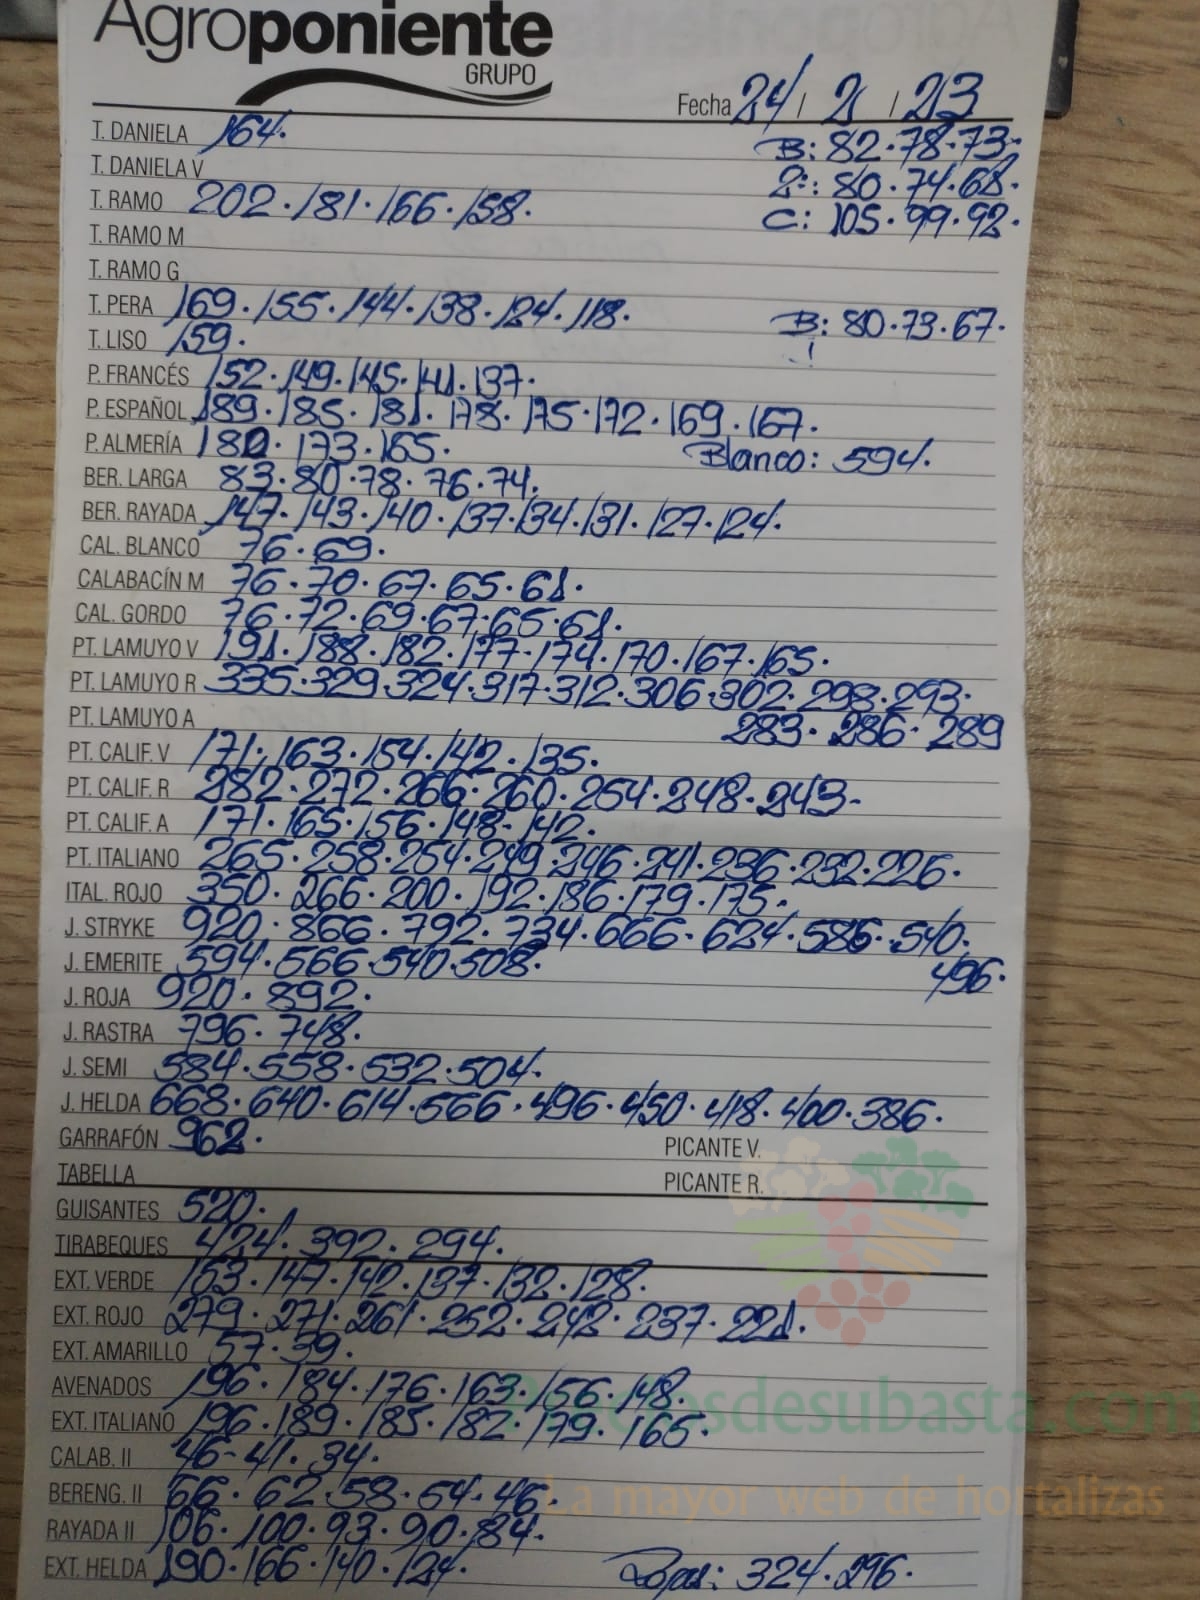 Agroponiente
GRUPO
Fecha 24 / 2 / 23
T. DANIELA 164. B: 82.78.73.
T. DANIELA V 2ª: 80.74.68.
T. RAMO 202.181.166.158. C: 105.99.92.
T. RAMO M
T. RAMO G
T. PERA 169.155.144.138.124.118. B: 80.73.67.
T. LISO 159.
P. FRANCÉS 152.149.145.141.137.
P. ESPAÑOL 189.185.181.178.175.172.169.167.
P. ALMERÍA 180.173.165. Blanco: 594.
BER. LARGA 83.80.78.76.74.
BER. RAYADA 147.143.140.137.134.131.127.124.
CAL. BLANCO 76.69.
CALABACÍN M 76.70.67.65.61.
CAL. GORDO 76.72.69.67.65.61.
PT. LAMUYO V 191.188.182.177.174.170.167.165.
PT. LAMUYO R 335.329.324.317.312.306.302.298.293.
PT. LAMUYO A 283.286.289
PT. CALIF. V 171.163.154.142.135.
PT. CALIF. R 282.272.266.260.254.248.243-
PT. CALIF. A 171.165.156.148-142.
PT. ITALIANO 265.258.254.249.246.241.236.232.226.
ITAL. ROJO 350.266.200.192.186.179.175.
J. STRYKE 920.866.792.734.666.624.586.540.
J. EMERITE 594.566.540.508. 496.
J. ROJA 920.892.
J. RASTRA 796.748.
J. SEMI 584.558.532.504.
J. HELDA 668.640.614.566.496.450.418.400.386.
GARRAFÓN 962. PICANTE V.
TABELLA PICANTE R.
GUISANTES 520.
TIRABEQUES 424.392.294.
EXT. VERDE 153.147.142.137.132.128.
EXT. ROJO 279.271.261.252.242.237.221.
EXT. AMARILLO 57.39.
AVENADOS 196.184.176.163.156.148.
EXT. ITALIANO 196.189.185.182.179.165.
Preciosdesubasta.com
CALAB. II 46-41.34.
BERENG. II 66.62.58.54.46.
La mayor web de hortalizas
RAYADA II 106.100.93.90.84.
EXT. HELDA 190.166.140.124. Rojas: 324.296.